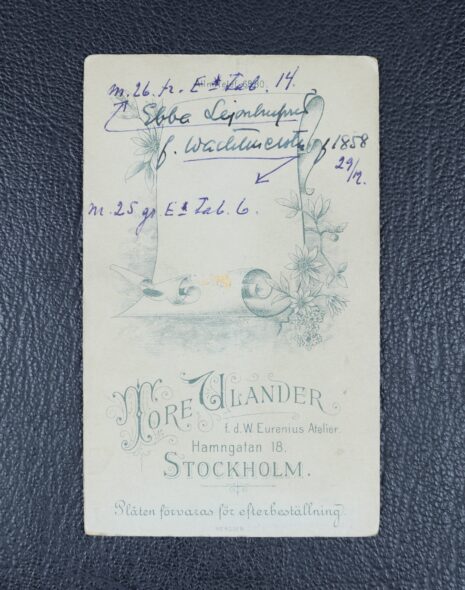 m. 26. fr. E* Tab. 14.
Ebba Lejonhufvud
f. Wachtmeister f 1858
29/12.
m. 25 gr E* Tab. 6.
TORE ULANDER
f. d. W. Eurenius Atelier.
Hamngatan 18.
STOCKHOLM.
Plåten förvaras för efterbeställning.